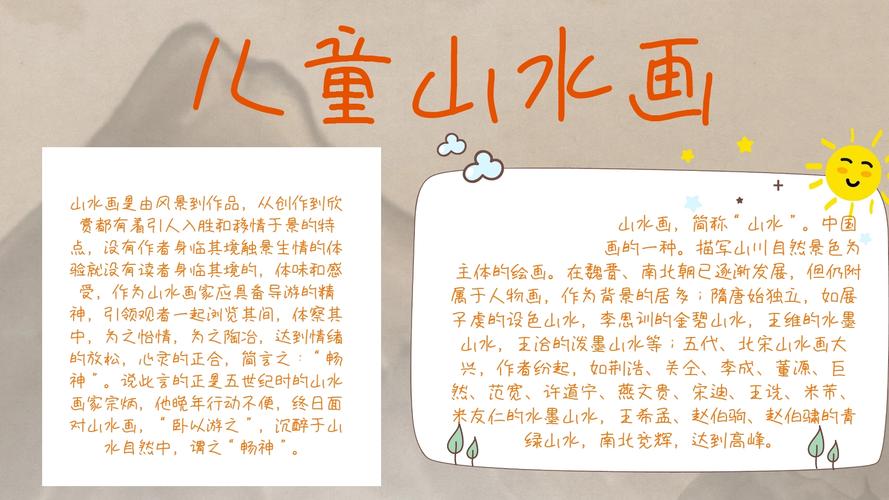 儿童山水画
山水画是由风景到作品，从创作到欣
赏都有着引人入胜和移情于景的特
点，没有作者身临其境触景生情的体
验就没有读者身临其境的，体味和感
受，作为山水画家应具备导游的精
神，引领观者一起浏览其间，体察其
中，为之怡情，为之陶冶，达到情绪
的放松，心灵的正合，简言之：“畅
神”。说此言的正是五世纪时的山水
画家宗炳，他晚年行动不便，终日面
对山水画，“卧以游之”，沉醉于山
水自然中，谓之“畅神”。
山水画，简称“山水”。中国
画的一种。描写山川自然景色为
主体的绘画。在魏晋、南北朝已逐渐发展，但仍附
属于人物画，作为背景的居多；隋唐始独立，如展
子虔的设色山水，李思训的金碧山水，王维的水墨
山水，王洽的泼墨山水等；五代、北宋山水画大
兴，作者纷起，如荆浩、关仝、李成、董源、巨
然、范宽、许道宁、燕文贵、宋迪、王诜、米芾、
米友仁的水墨山水，王希孟、赵伯驹、赵伯骕的青
绿山水，南北竞辉，达到高峰。